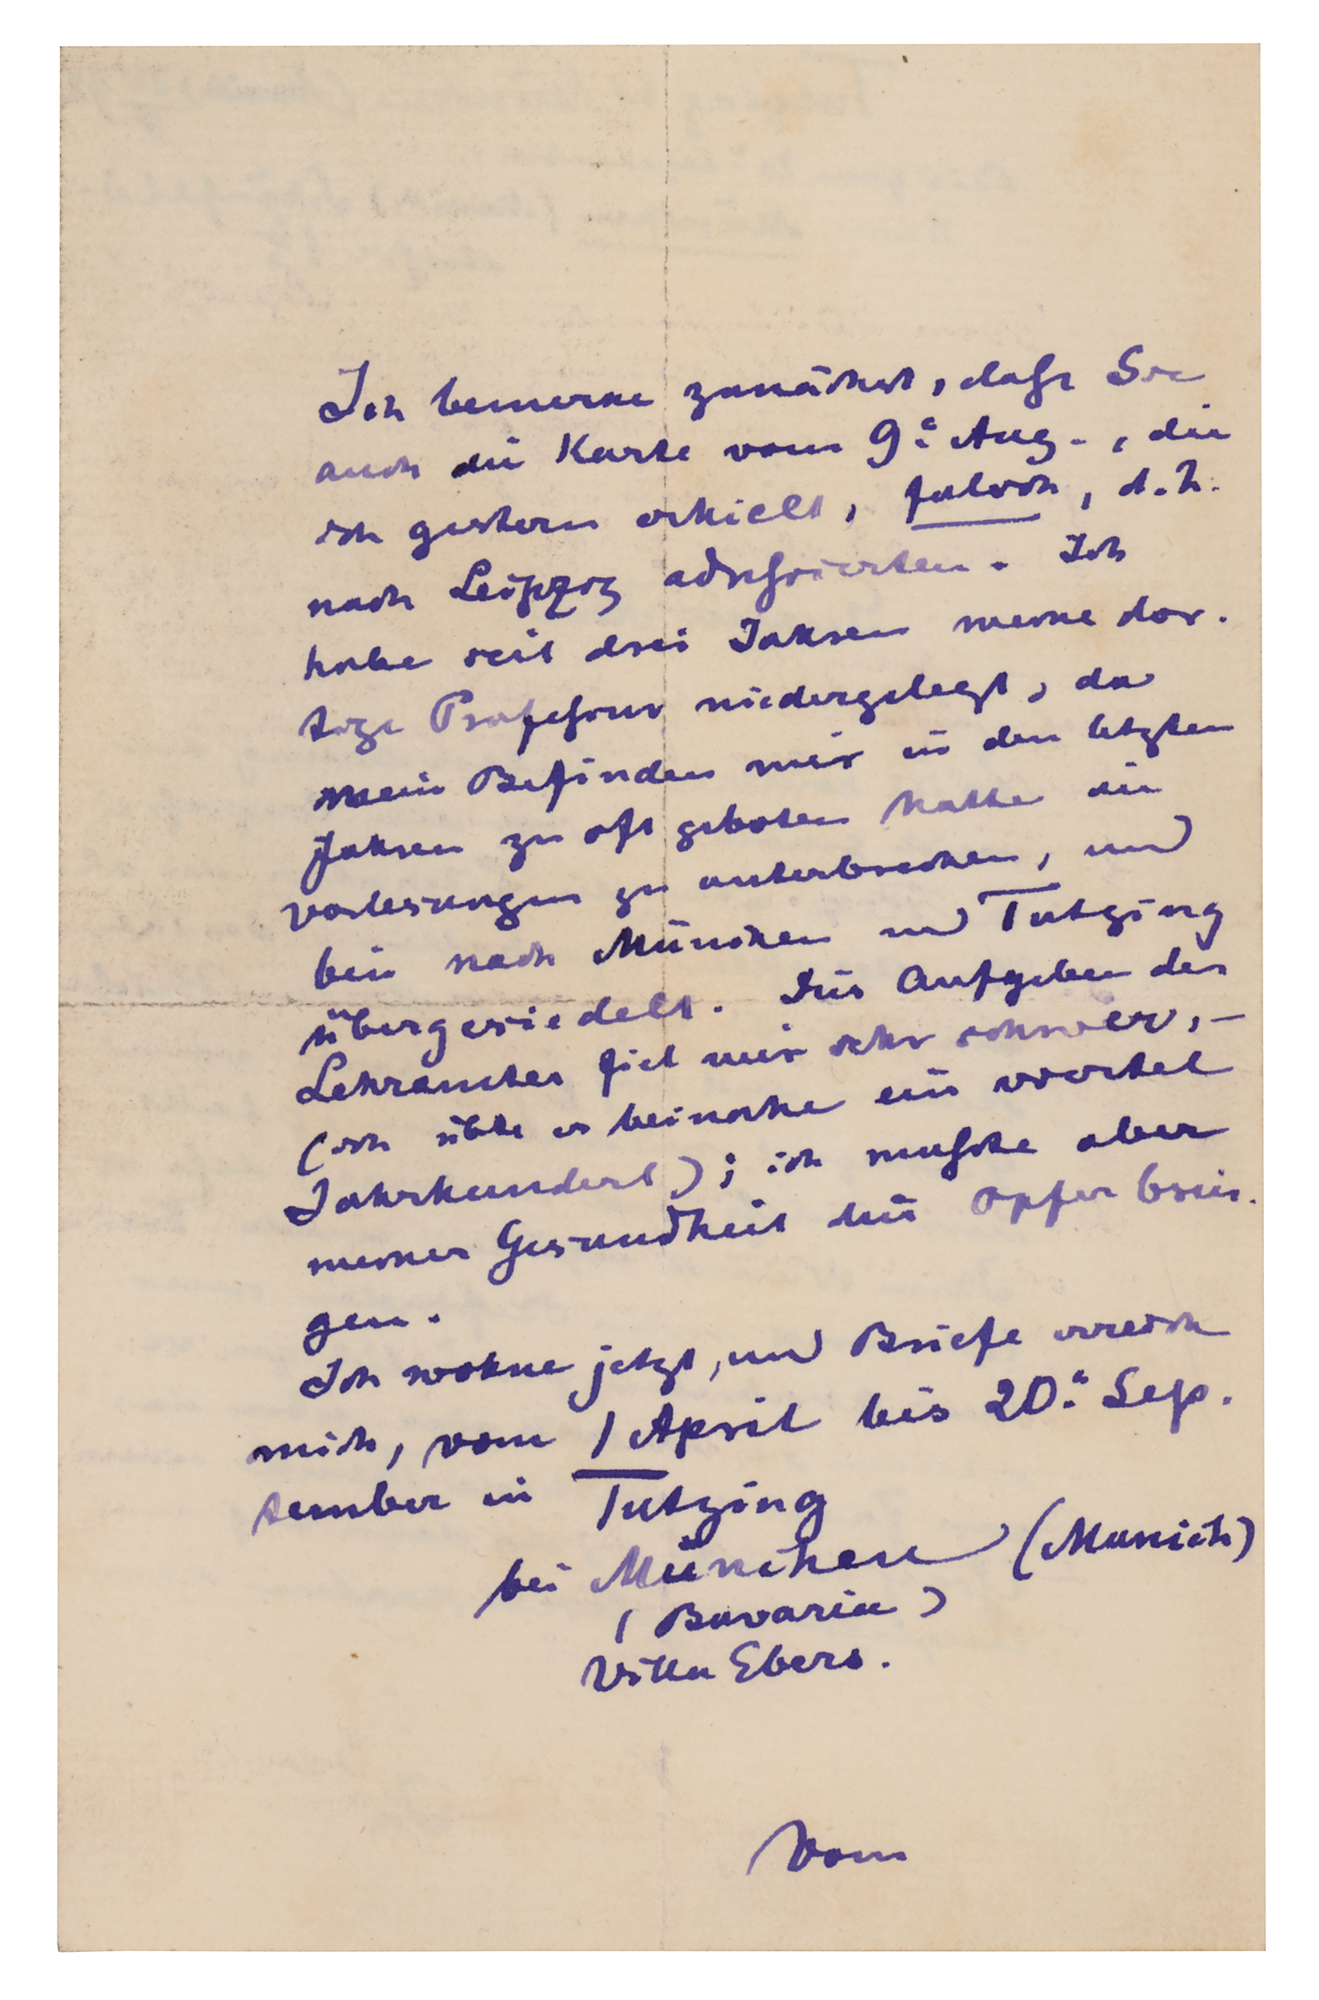 Ich bemerke zunächst, dafs Sie
auch die Karte vom 9.ᵗ Aug., die
ich gestern erhielt, falsch, d. h.
nach Leipzig adressierten. Ich
habe seit drei Jahren meine dor-
tige Professur niedergelegt, da
mein Befinden mir in den letzten
Jahren zu oft geboten hatte die
Vorlesungen zu unterbrechen, und
bin nach München und Tutzing
übergesiedelt. Das Aufgeben des
Lehramtes fiel mir sehr schwer, –
(ich übte es beinahe ein viertel
Jahrhundert); ich mufste aber
meiner Gesundheit dies Opfer brin-
gen.
Ich wohne jetzt, und Briefe erreich
mich, vom 1 April bis 20.ᵗ Sep-
tember in Tutzing
bei München (Munich)
(Bavaria)
Villa Ebers.
Vom